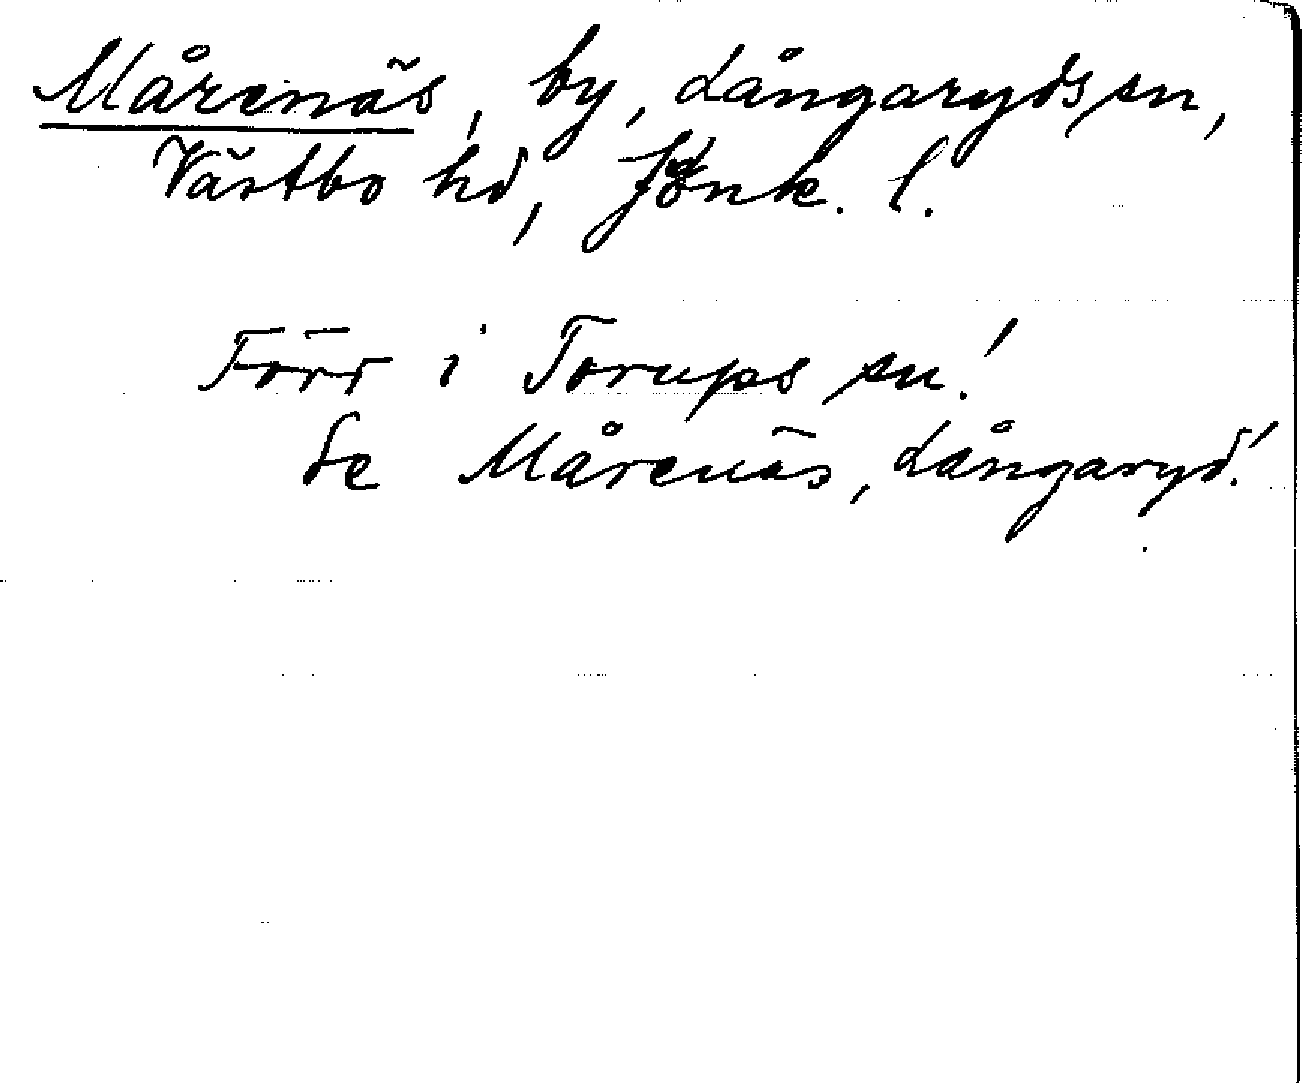 Mårenäs, by, Långaryds sn,
Västbo hd, Jönk. l.
Förr i Torups sn!
Se Mårenäs, Långaryd!